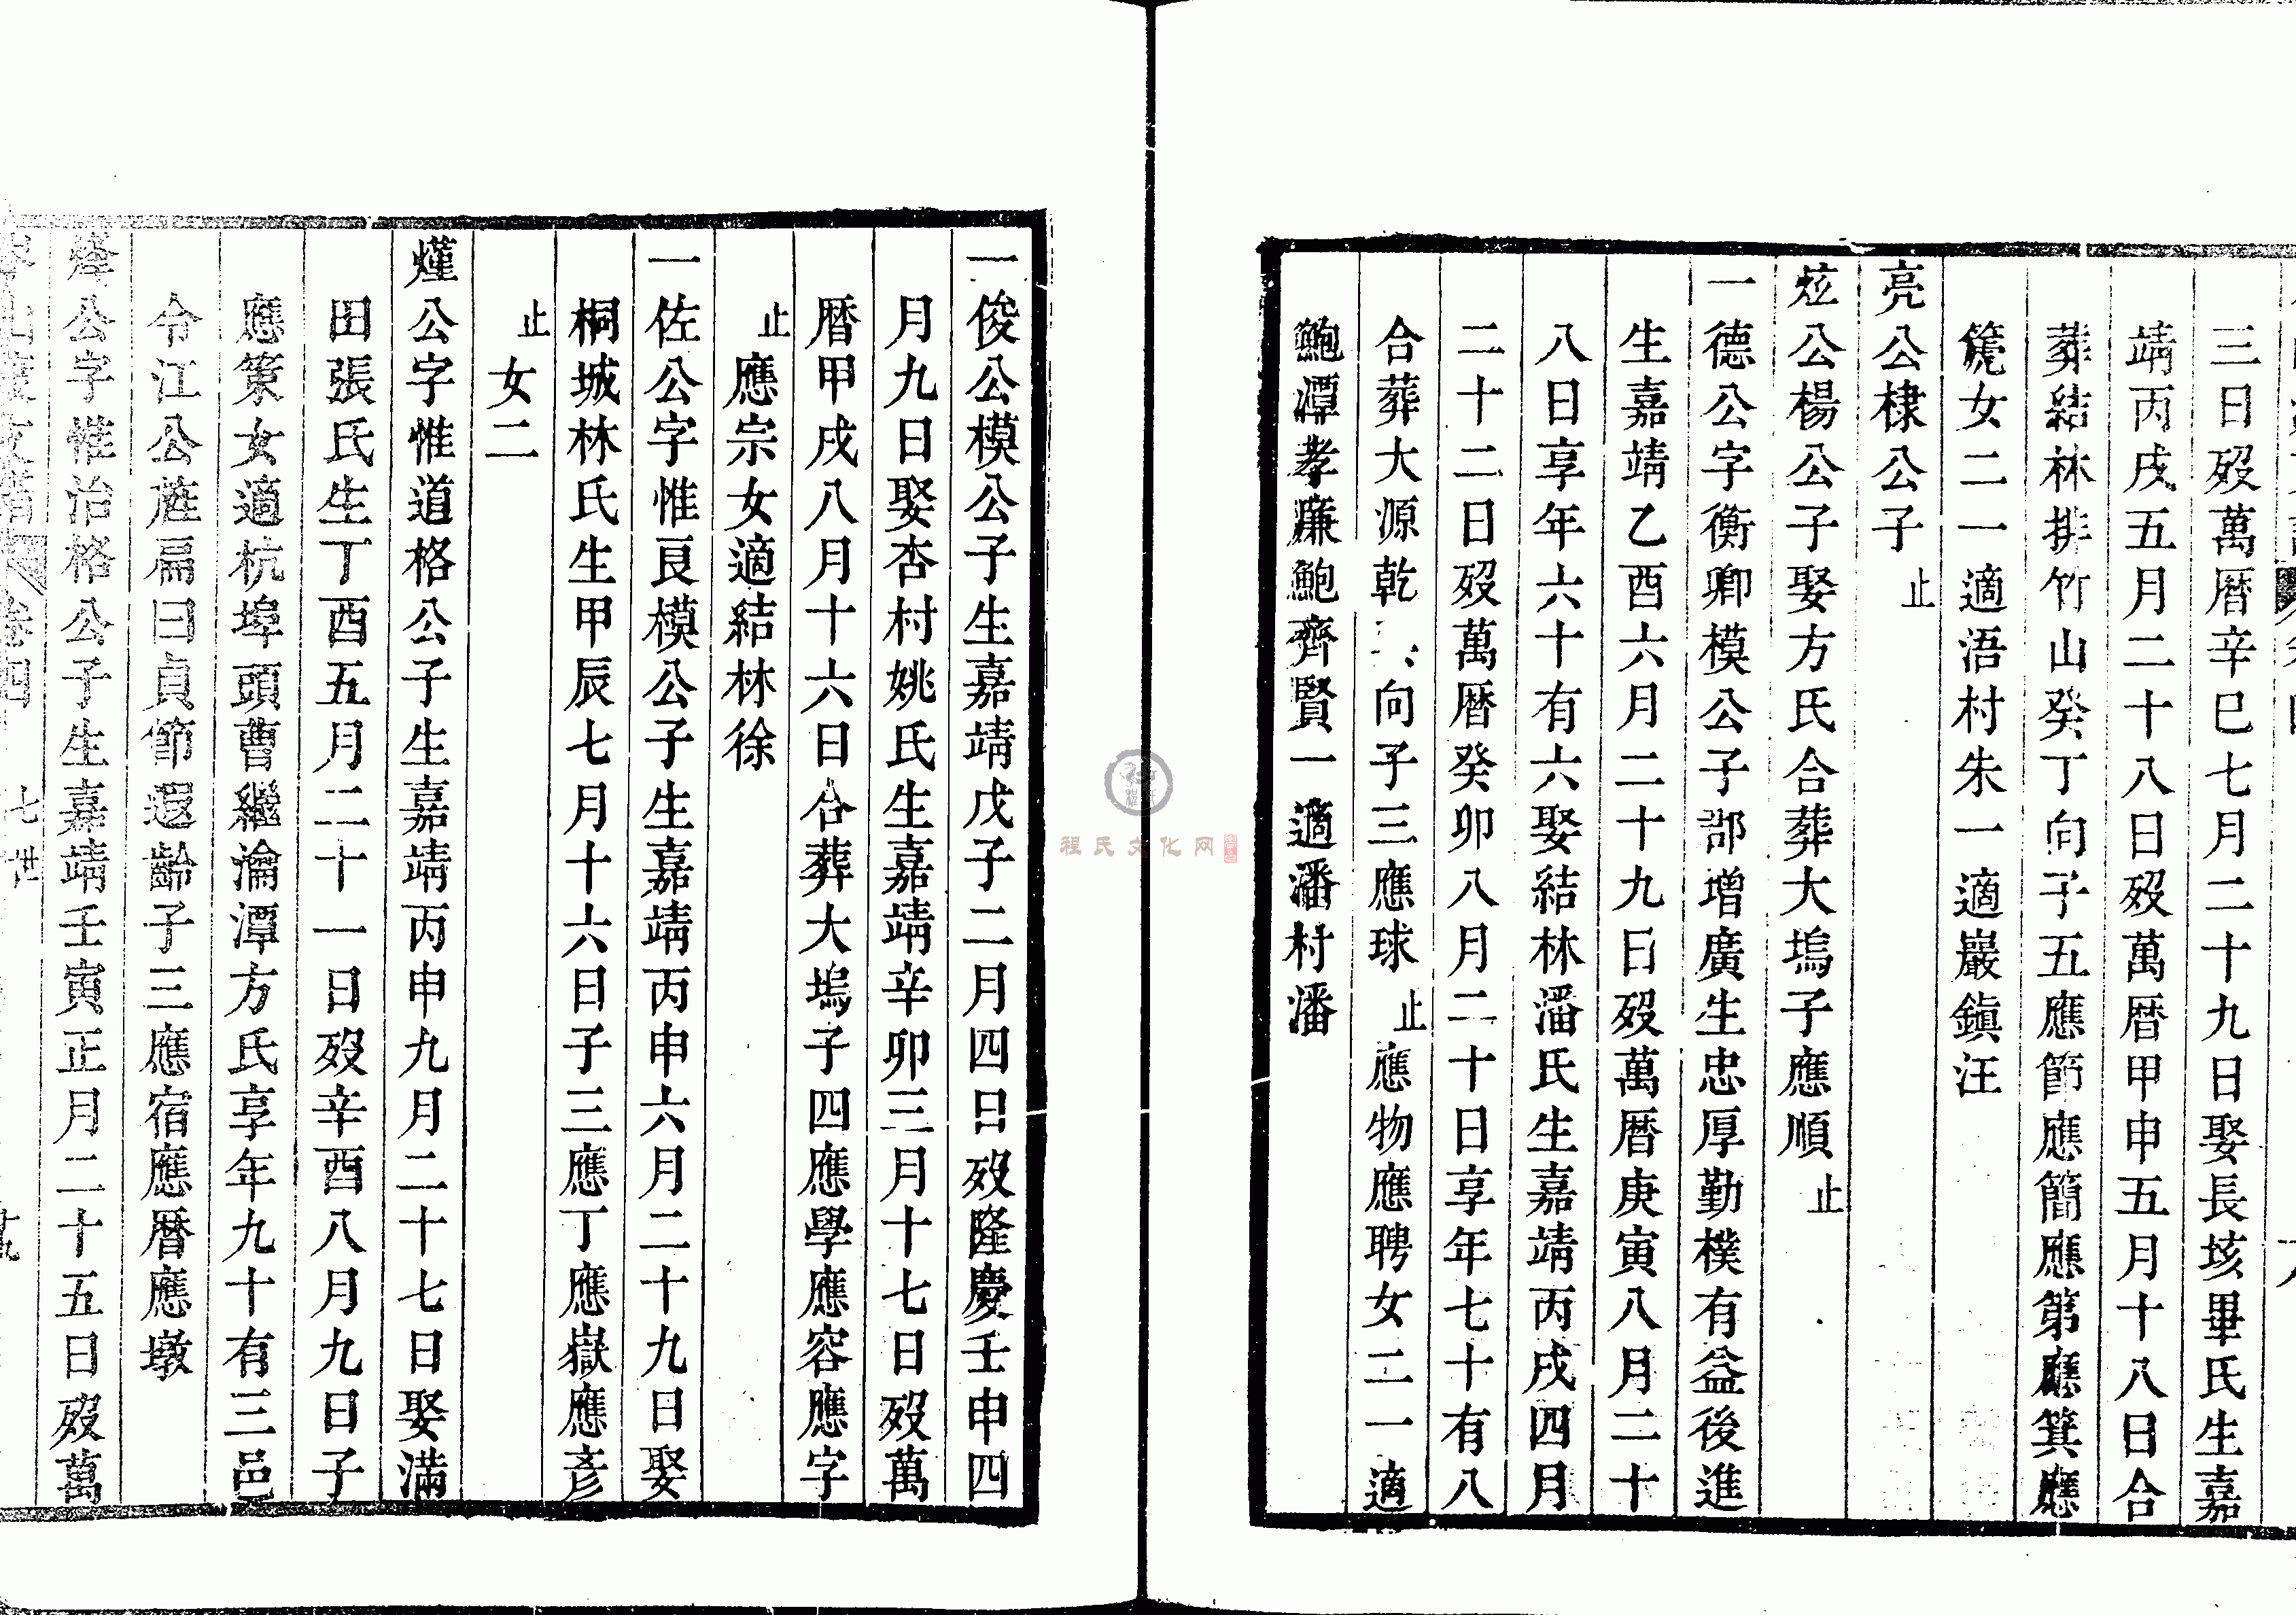 三日歿萬暦辛巳七月二十九日娶長垓畢氏生嘉
靖丙戌五月二十八日歿萬暦甲申五月十八日合
葬結林排竹山癸丁向子五應節應簡應第應箕應
篪女二一適浯村朱一適巖鎮汪
亮公棣公子止
炫公楊公子娶方氏合葬大塢子應順止
一德公字衡卿模公子郡增廣生忠厚勤樸有益後進
生嘉靖乙酉六月二十九日歿萬暦庚寅八月二十
八日享年六十有六娶結林潘氏生嘉靖丙戌四月
二十二日歿萬暦癸卯八月二十日享年七十有八
合葬大源乾向子三應球止應物應聘女二一適
鮑潭孝廉鮑齊賢一適潘村潘
一俊公模公子生嘉靖戊子二月四日歿隆慶壬申四
月九日娶杏村姚氏生嘉靖辛卯三月十七日歿萬
暦甲戌八月十六日合葬大塢子四應學應容應字
止應宗女適結林徐
一佐公字惟良模公子生嘉靖丙申六月二十九日娶
桐城林氏生甲辰七月十六日子三應丁應嶽應彥
止女二
爟公字惟道格公子生嘉靖丙申九月二十七日娶滿
田張氏生丁酉五月二十一日歿辛酉八月九日子
應策女適杭埠頭曹繼瀹潭方氏享年九十有三邑
令江公旌扁曰貞節遐齡子三應宿應暦應墩
烽公字惟治格公子生嘉靖壬寅正月二十五日歿萬
卷四 七世
程氏文化网